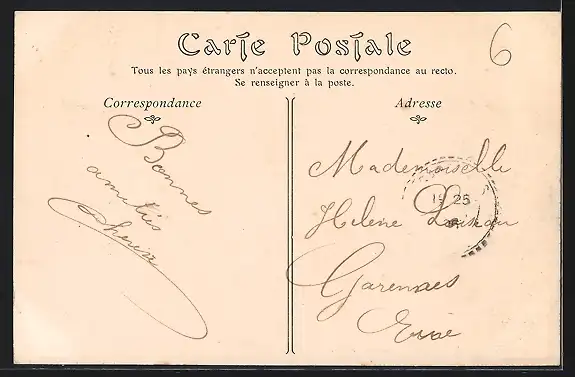 Carte Postale
Tous les pays étrangers n'acceptent pas la correspondance au recto.
Se renseigner à la poste.
Correspondance
Adresse
6
Bonnes
amitiés
Mademoiselle
Helene
Garennes
Eure
25